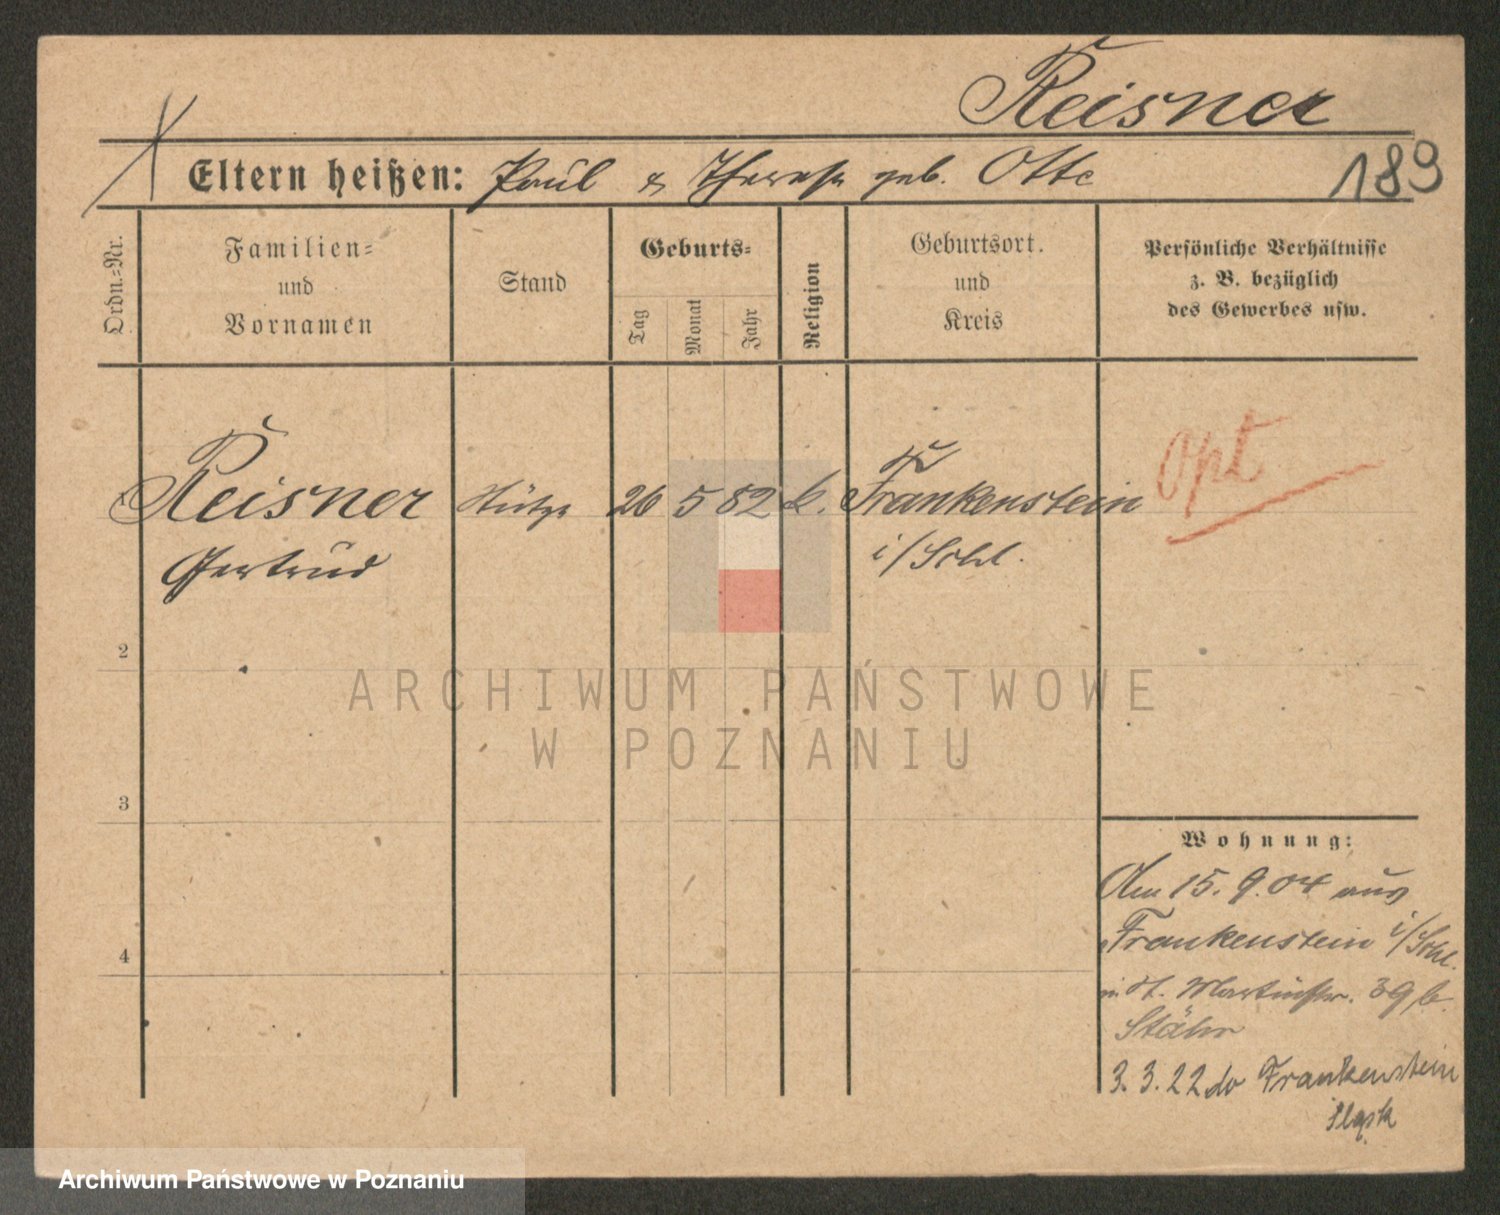 Reisner
Eltern heißen: Paul & Therese geb. Otte
189
Ordn.=Nr.
Familien=
und
Vornamen
Stand
Geburts=
Tag
Monat
Jahr
Religion
Geburtsort.
und
Kreis
Persönliche Verhältnisse
z. B. bezüglich
des Gewerbes usw.
Reisner Stütze 26 5 82 k. Frankenstein
Gertrud i/Schl.
Opt
2
3
4
ARCHIWUM PAŃSTWOWE
W POZNANIU
Wohnung:
Am 15. 9. 04 aus
Frankenstein i/Schl.
n. St. Martinstr. 39 b.
Stähr
3. 3. 22 do Frankenstein
Śląsk
Archiwum Państwowe w Poznaniu